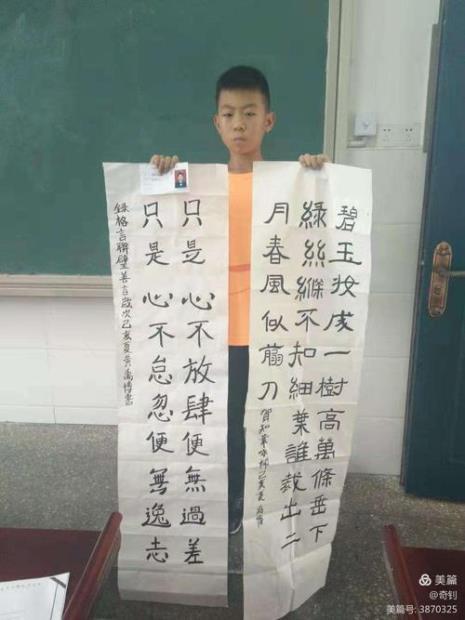 碧玉妝成一樹高萬條垂下
綠絲縧不知細葉誰裁出二
月春風似翦刀
賀知章咏柳己亥夏
只是心不放肆便無過差
只是心不怠忽便無逸志
錄格言聯璧善言歲次己亥夏黃禹博書
美篇
@奇钊
美篇号: 3870325